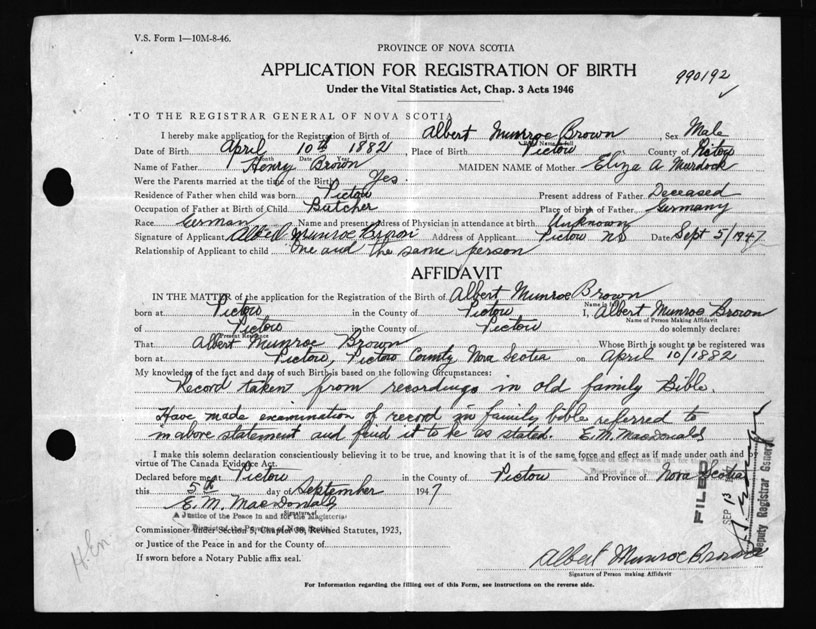 V.S. Form 1—10M-8-46.
PROVINCE OF NOVA SCOTIA
APPLICATION FOR REGISTRATION OF BIRTH
990192
Under the Vital Statistics Act, Chap. 3 Acts 1946
TO THE REGISTRAR GENERAL OF NOVA SCOTIA
I hereby make application for the Registration of Birth of Albert Munroe Brown, Sex Male
Name in full
Date of Birth April 10th 1882, Place of Birth Pictou County of Pictou
Month Date Year
Name of Father Henry Brown MAIDEN NAME of Mother Eliza A Murdock
Were the Parents married at the time of the Birth Yes.
Residence of Father when child was born Pictou Present address of Father Deceased
Occupation of Father at Birth of Child Butcher Place of birth of Father Germany
Race German Name and present address of Physician in attendance at birth Unknown
Signature of Applicant Albert Munroe Brown Address of Applicant Pictou NS Date Sept 5/1947
Relationship of Applicant to child One and the same person
AFFIDAVIT
IN THE MATTER of the application for the Registration of the Birth of Albert Munroe Brown
Name in full
born at Pictou in the County of Pictou I, Albert Munroe Brown
Name of Person Making Affidavit
of Pictou in the County of Pictou do solemnly declare:
Present Residence
That Albert Munroe Brown Whose Birth is sought to be registered was
born at Pictou, Pictou County Nova Scotia on April 10/1882
My knowledge of the fact and date of such Birth is based on the following Circumstances:
Record taken from recordings in old family Bible.
Have made examination of record in family bible referred to
in above statement and find it to be as stated. E.M. MacDonald
I make this solemn declaration conscientiously believing it to be true, and knowing that it is of the same force and effect as if made under oath and by
virtue of The Canada Evidence Act.
A Justice of the Peace in and for the
Declared before me at Pictou in the County of Pictou and Province of Nova Scotia
this 5th day of September 1947
E. M. MacDonald
Signature of
A Justice of the Peace in and for the Magisterial
Commissioner under Section 5, Chapter 38, Revised Statutes, 1923,
or Justice of the Peace in and for the County of
If sworn before a Notary Public affix seal.
FILED
SEP 13
Deputy Registrar General
Albert Munroe Brown
Signature of Person making Affidavit
For Information regarding the filling out of this Form, see instructions on the reverse side.